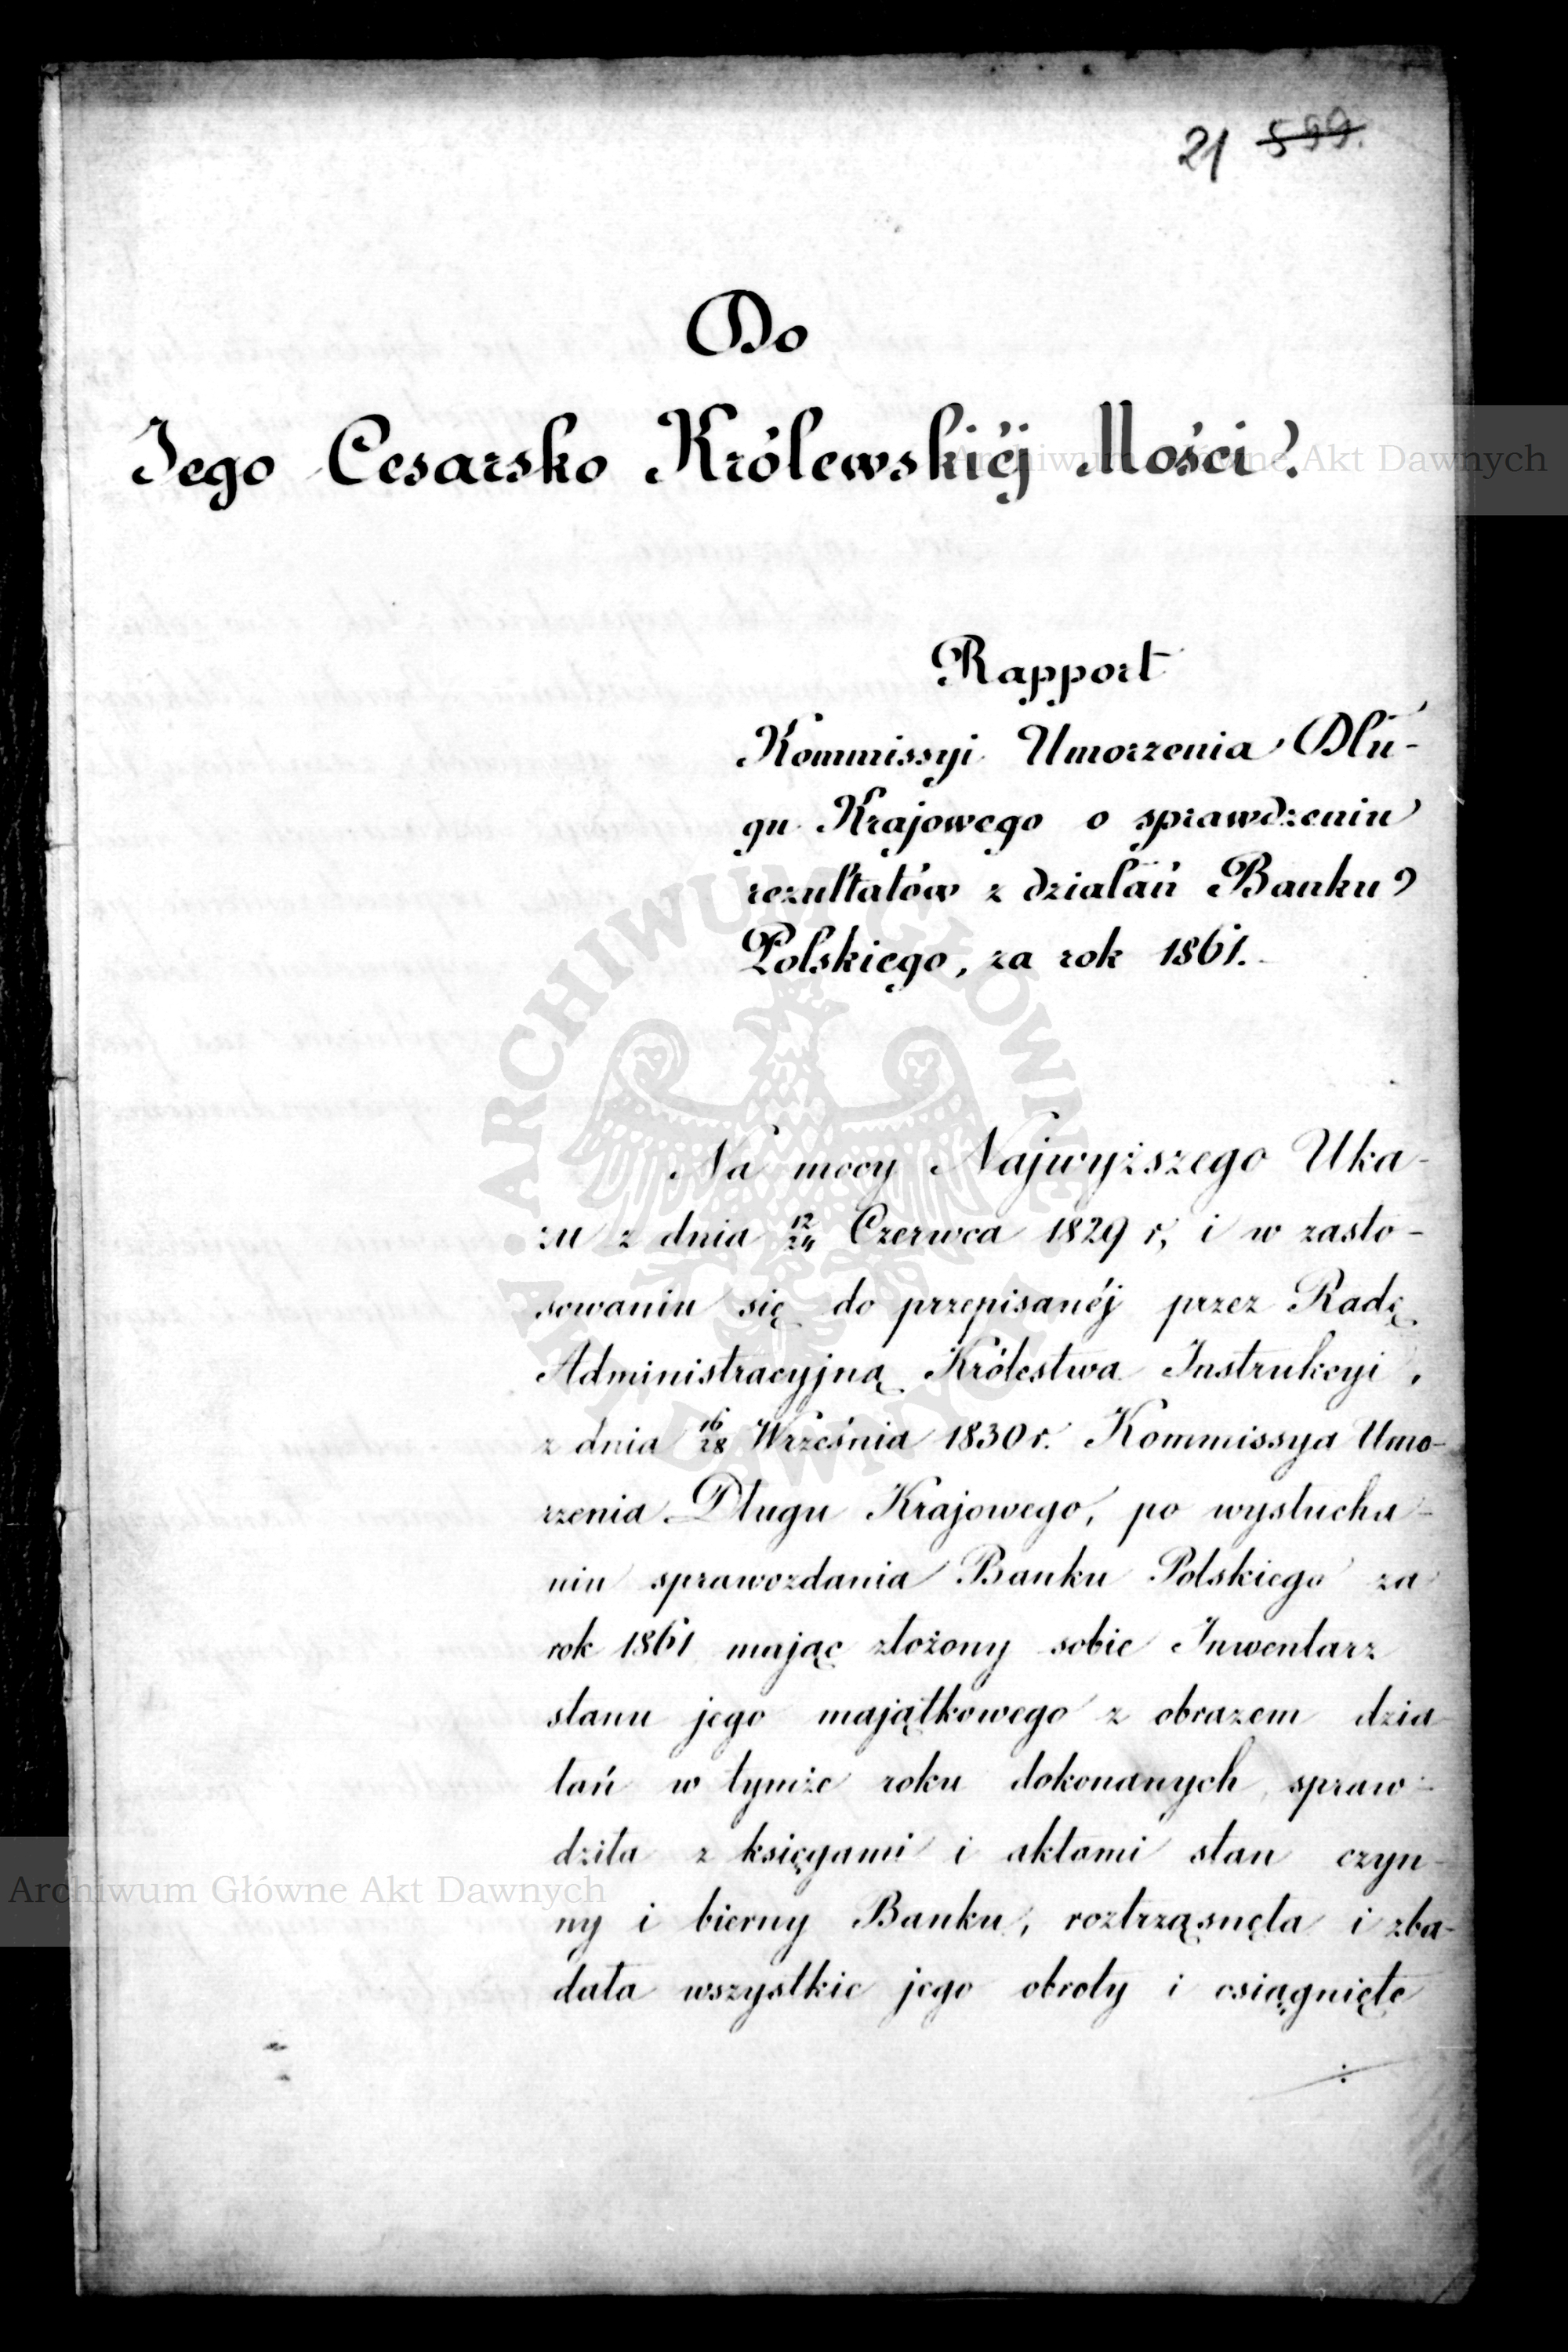 21 599.
Do
Jego Cesarsko Królewskiéj Mości.
Rapport
Kommissyi Umorzenia Dłu-
gu Krajowego o sprawdzeniu
rezultatów z działań Banku
Polskiego, za rok 1861.
Na mocy Najwyższego Uka-
zu z dnia 12/24 Czerwca 1829 r, i w zasto-
sowaniu się do przepisanéj przez Radę
Administracyjną Królestwa Instrukcyi,
z dnia 16/28 Września 1830 r. Kommissya Umo-
rzenia Długu Krajowego, po wysłucha-
niu sprawozdania Banku Polskiego za
rok 1861 mając złożony sobie Inwentarz
stanu jego majątkowego z obrazem dzia-
łań w tymże roku dokonanych, spraw-
dziła z księgami i aktami stan czyn-
ny i bierny Banku, roztrząsnęła i zba-
dała wszystkie jego obroty i osiągnięte
Archiwum Główne Akt Dawnych
Archiwum Główne Akt Dawnych
A·ARCHIWUM GŁÓWNE·AKT DAWNYCH